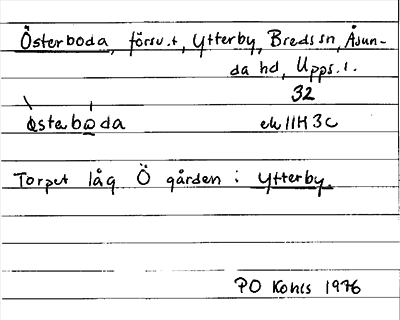 Österboda, försv.t, Ytterby, Breds sn, Åsun-
da hd, Upps. l.
32
ek 11H 3c
Torpet låg Ö gården i Ytterby.
PO Kohls 1976